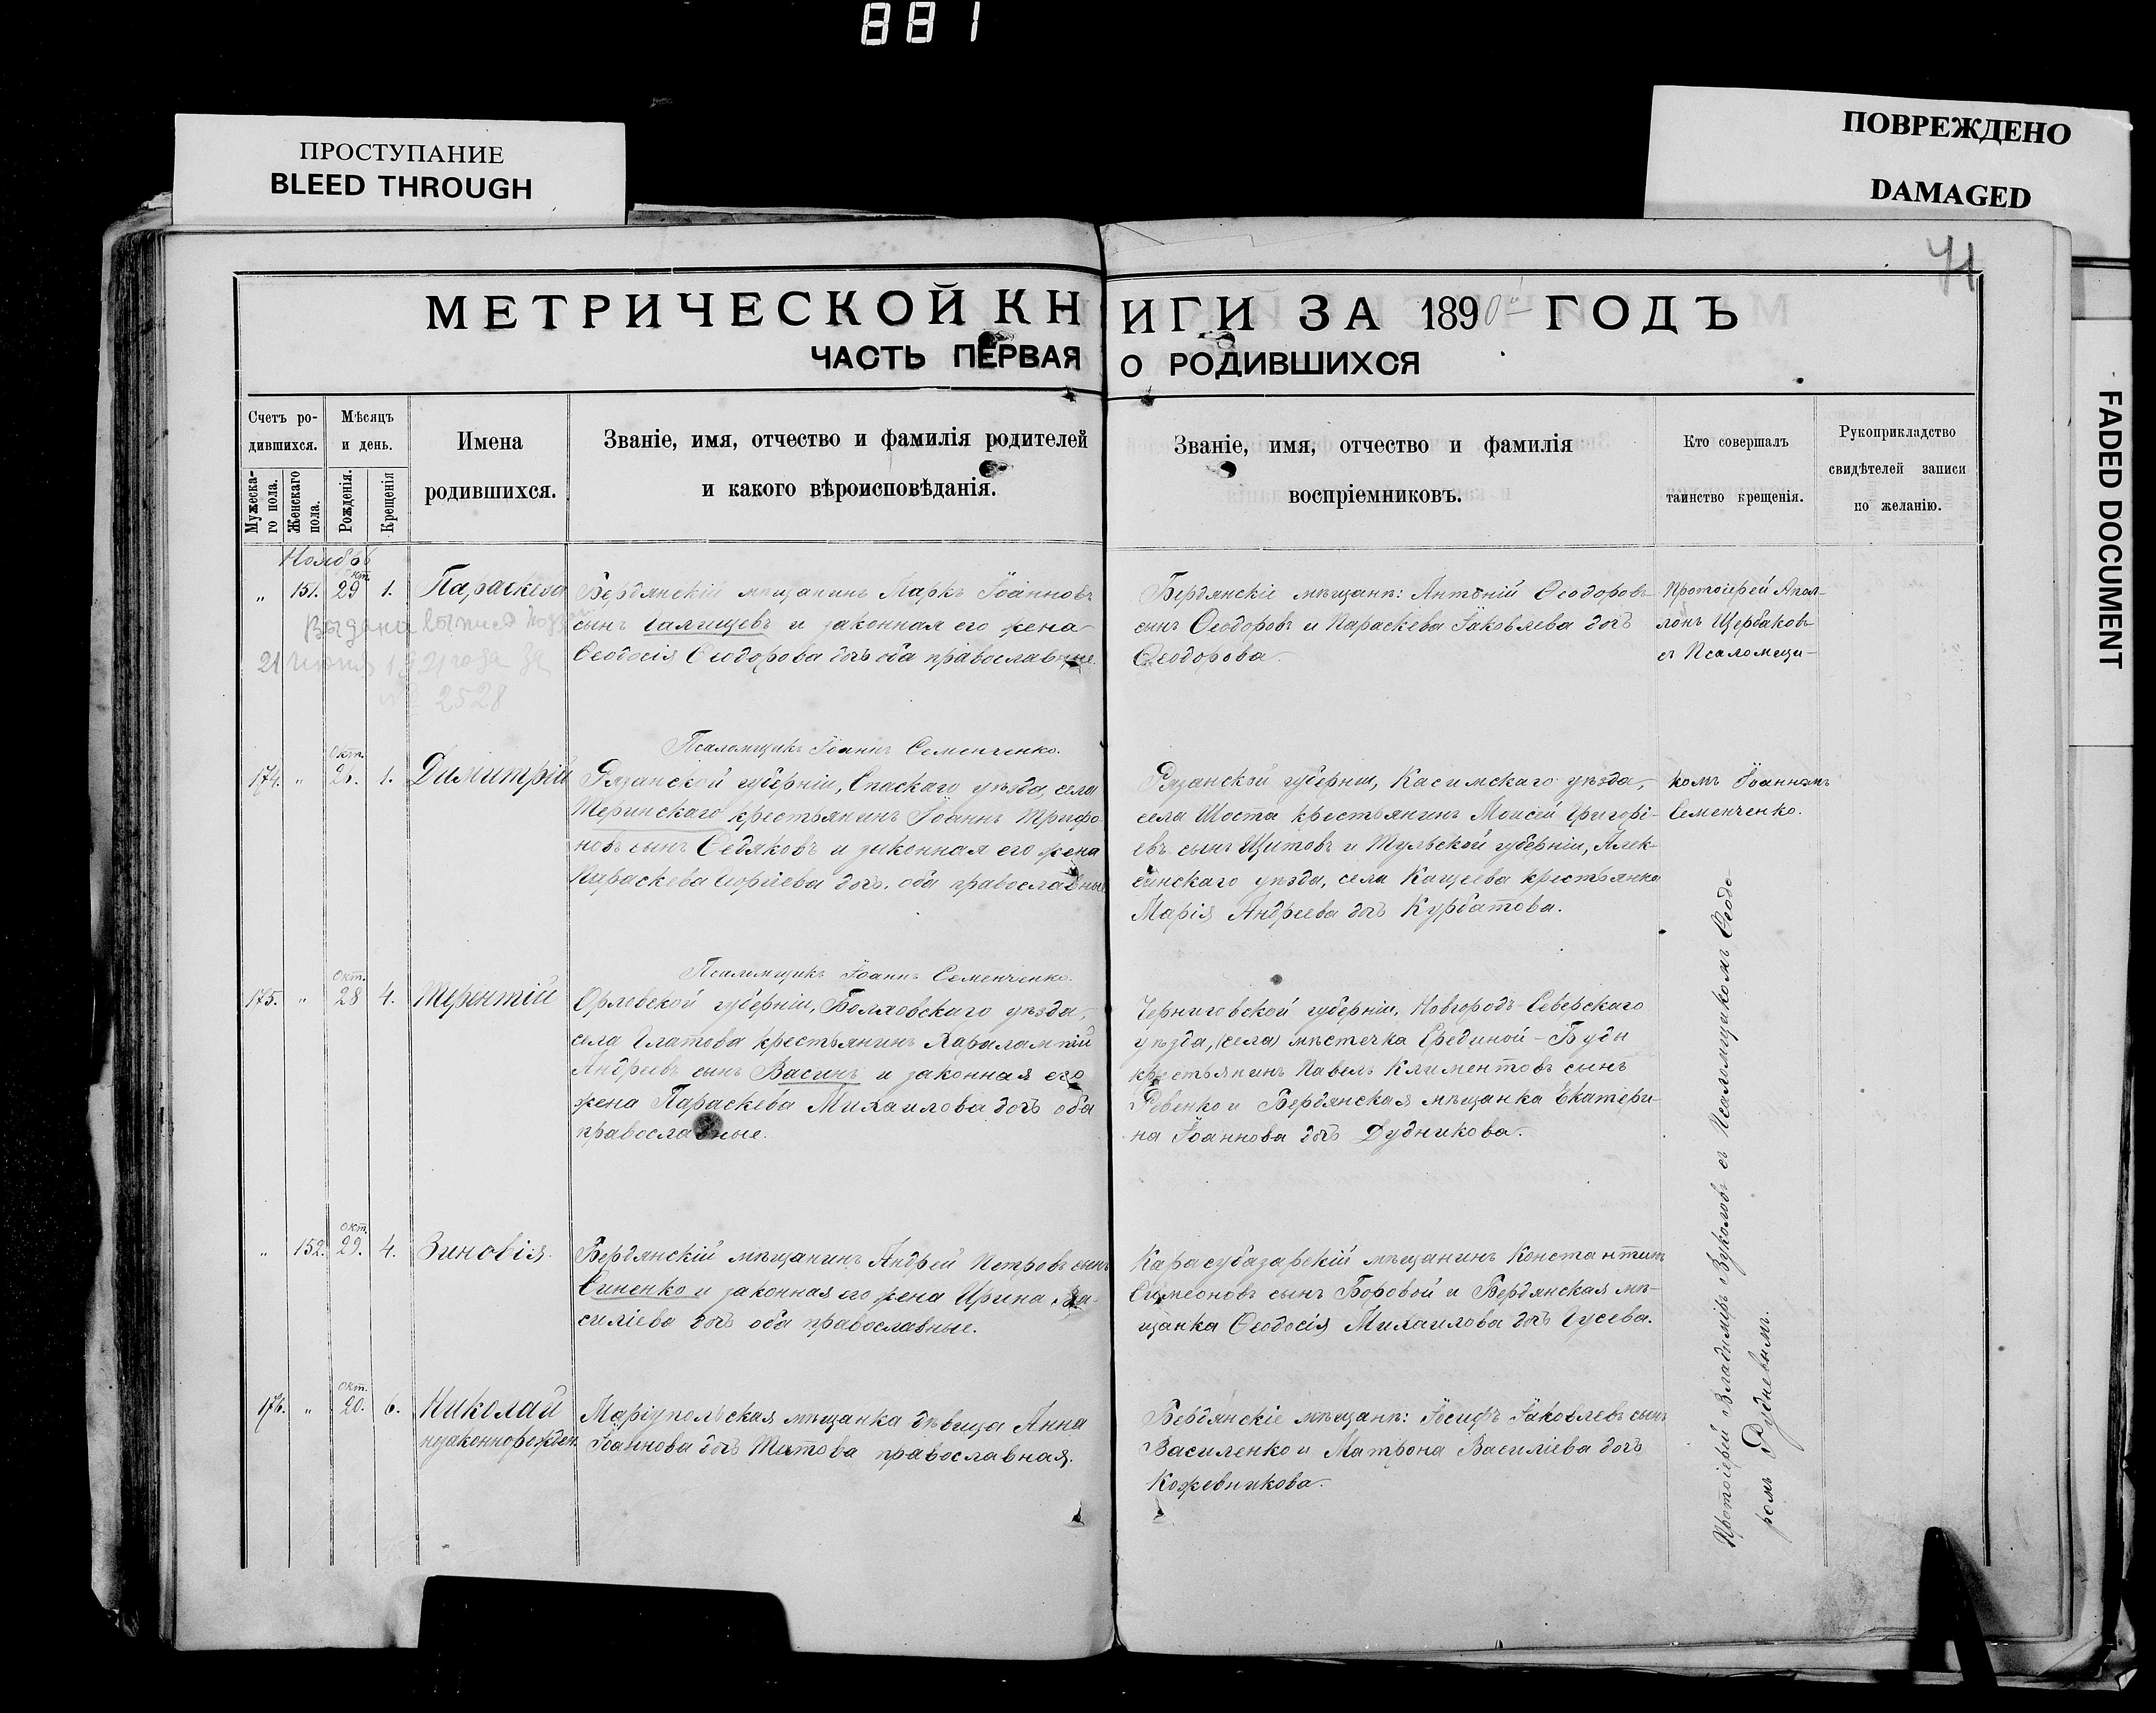 881
ПРОСТУПАНИЕ
BLEED THROUGH
ПОВРЕЖДЕНО
DAMAGED
FADED DOCUMENT
41
МЕТРИЧЕСКОЙ КНИГИ ЗА 1890й ГОДЪ
ЧАСТЬ ПЕРВАЯ О РОДИВШИХСЯ
Счетъ ро-
дившихся.
Мужеска-
го пола.
Женскаго
пола.
Мѣсяцъ
и день.
Рожденія.
Крещенія
Имена
родившихся.
Званіе, имя, отчество и фамилія родителей
и какого вѣроисповѣданія.
Званіе, имя, отчество и фамилія
воспріемниковъ.
Кто совершалъ
таинство крещенія.
Рукоприкладство
свидѣтелей записи
по желанію.
Ноябрь
" 151. окт. 29 1.
Параскева
Выдана выпись
21 июня 1921 года за
№ 2528
Бердянскій мѣщанинъ Маркъ Іоанновъ
сынъ Галищевъ и законная его жена
Ѳеодосія Ѳеодорова дочь оба православные.
Бердянскіе мѣщане: Антоній Ѳеодоровъ
сынъ Ѳеодоровъ и Параскева Іаковлева дочь
Ѳеодорова.
Протоіерей Апол-
лонъ Щербаковъ
съ Псаломщи-
Псаломщикъ Іоаннъ Семенченко.
174. " окт. 26. 1.
Димитрій
Рязанской губерніи, Спаскаго уѣзда, села
Меринскаго крестьянинъ Іоаннъ Трифо
новъ сынъ Седяковъ и законная его жена
Параскева Георгіева дочь. оба православные
Рязанской губерніи, Касимскаго уѣзда,
села Шоста крестьянинъ Моисей Григорі-
евъ сынъ Щитовъ и Тульской губерніи, Алек-
синскаго уѣзда, села Кащеева крестьянка
Марія Андреева дочь Курбатова.
комъ Іоанномъ
Семенченко.
Псаломщикъ Іоаннъ Семенченко.
175. " окт. 28 4.
Терентій
Орловской губерніи, Болховскаго уѣзда,
села Глатова крестьянинъ Харалампій
Андреевъ сынъ Васинъ и законная его
жена Параскева Михаилова дочь оба
православные.
Черниговской губерніи, Новгородъ-Северскаго
уѣзда, (села) мѣстечка Срединой-Буды
крестьянинъ Павелъ Климентовъ сынъ
Ревенко и Бердянская мѣщанка Екатери-
на Іоаннова дочь Дудникова.
" 152. окт. 29. 4.
Зиновія.
Бердянскій мѣщанинъ Андрей Петровъ сынъ
Синенко и законная его жена Ирина Ва-
силіева дочь оба православные.
Карасубазарскій мѣщанинъ Константинъ
Симеоновъ сынъ Боровой и Бердянская мѣ-
щанка Ѳеодосія Михаилова дочь Гусева.
176. " окт. 20. 6.
Николай
незаконнорожден.
Маріупольская мѣщанка дѣвица Анна
Іоаннова дочь Титова православная.
Бердянскіе мѣщане: Іосифъ Іаковлевъ сынъ
Василенко и Матрона Василіева дочь
Кожевникова.
Протоіерей Владиміръ Вуколовъ съ Псаломщикомъ Ѳеодо
ромъ Рудневымъ.